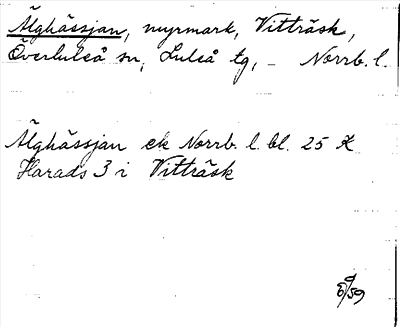 Älghässjan, myrmark, Vitträsk,
Överluleå sn, Luleå tg, – Norrb. l.
Älghässjan ek Norrb. l. bl. 25 K
Harads 3 i Vitträsk